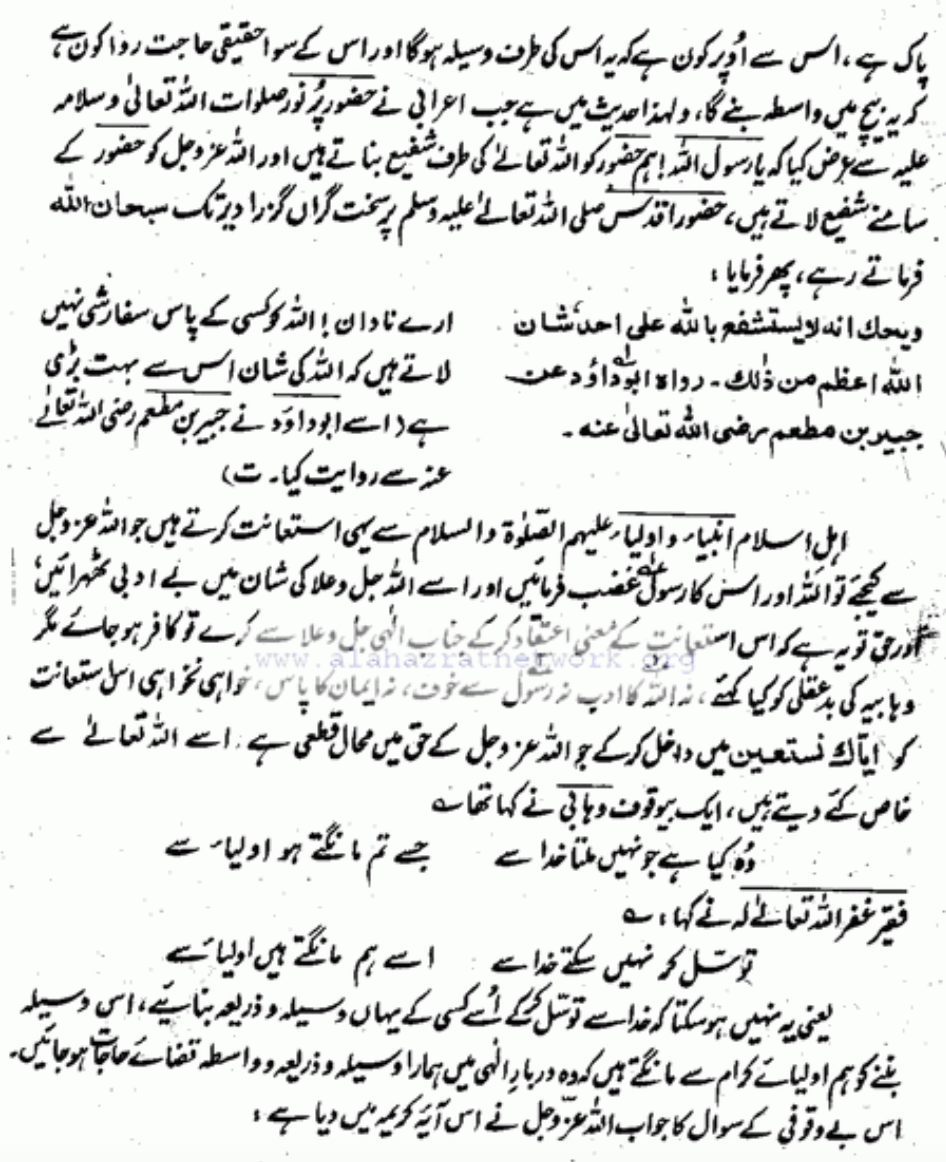 پاک ہے، اس سے اُوپر کون ہے کہ یہ اس کی طرف وسیلہ ہوگا اور اس کے سوا حقیقی حاجت روا کون ہے
کہ یہ بیچ میں واسطہ بنے گا، ولہذا حدیث میں ہے جب اعرابی نے حضور پُرنور صلوات اللہ تعالیٰ وسلامہ
علیہ سے عرض کیا کہ یا رسول اللہ! ہم حضور کو اللہ تعالیٰ کی طرف شفیع بناتے ہیں اور اللہ عزوجل کو حضور کے
سامنے شفیع لاتے ہیں، حضور اقدس صلی اللہ تعالیٰ علیہ وسلم پر سخت گراں گزرا دیر تک سبحان اللہ
فرماتے رہے، پھر فرمایا:
ويحك انه لا يستشفع بالله على احد شان
الله اعظم من ذٰلك۔ رواه ابوداؤد عن
جبير بن مطعم رضى الله تعالىٰ عنه۔
ارے نادان! اللہ کو کسی کے پاس سفارشی نہیں
لاتے ہیں کہ اللہ کی شان اس سے بہت بڑی
ہے (اسے ابوداؤد نے جبیر بن مطعم رضی اللہ تعالیٰ
عنہ سے روایت کیا۔ ت)
اہلِ اسلام انبیاء و اولیاء علیہم الصلوٰۃ والسلام سے یہی استعانت کرتے ہیں جو اللہ عزوجل
سے کیجئے تو اللہ اور اس کا رسول غضب فرمائیں اور اسے اللہ جل وعلا کی شان میں بے ادبی ٹھہرائیں،
اور حق تو یہ ہے کہ اس استعانت کے معنی اعتقاد کرکے جناب الٰہی جل وعلا سے کرے تو کافر ہوجائے مگر
www.alahazratnetwork.org
وہابیہ کی بدعقلی کو کیا کہئے، نہ اللہ کا ادب نہ رسول سے خوف، نہ ایمان کا پاس، خواہی نخواہی اس استعانت
کو ایاك نستعین میں داخل کرکے جو اللہ عزوجل کے حق میں محال قطعی ہے اسے اللہ تعالیٰ سے
خاص کئے دیتے ہیں، ایک بیوقوف وہابی نے کہا تھا ؎
وُہ کیا ہے جو نہیں ملتا خدا سے جسے تم مانگتے ہو اولیاء سے
فقیر غفر اللہ تعالیٰ لہ نے کہا: ؎
توسّل کر نہیں سکتے خدا سے اسے ہم مانگتے ہیں اولیاء سے
یعنی یہ نہیں ہوسکتا کہ خدا سے توسّل کرکے اُسے کسی کے یہاں وسیلہ و ذریعہ بنائیے، اس وسیلہ
بننے کو ہم اولیائے کرام سے مانگتے ہیں کہ وہ دربارِ الٰہی میں ہمارا وسیلہ و ذریعہ و واسطہ قضائے حاجات ہوجائیں۔
اس بے وقوفی کے سوال کا جواب اللہ عزّوجل نے اس آیۂ کریمہ میں دیا ہے: